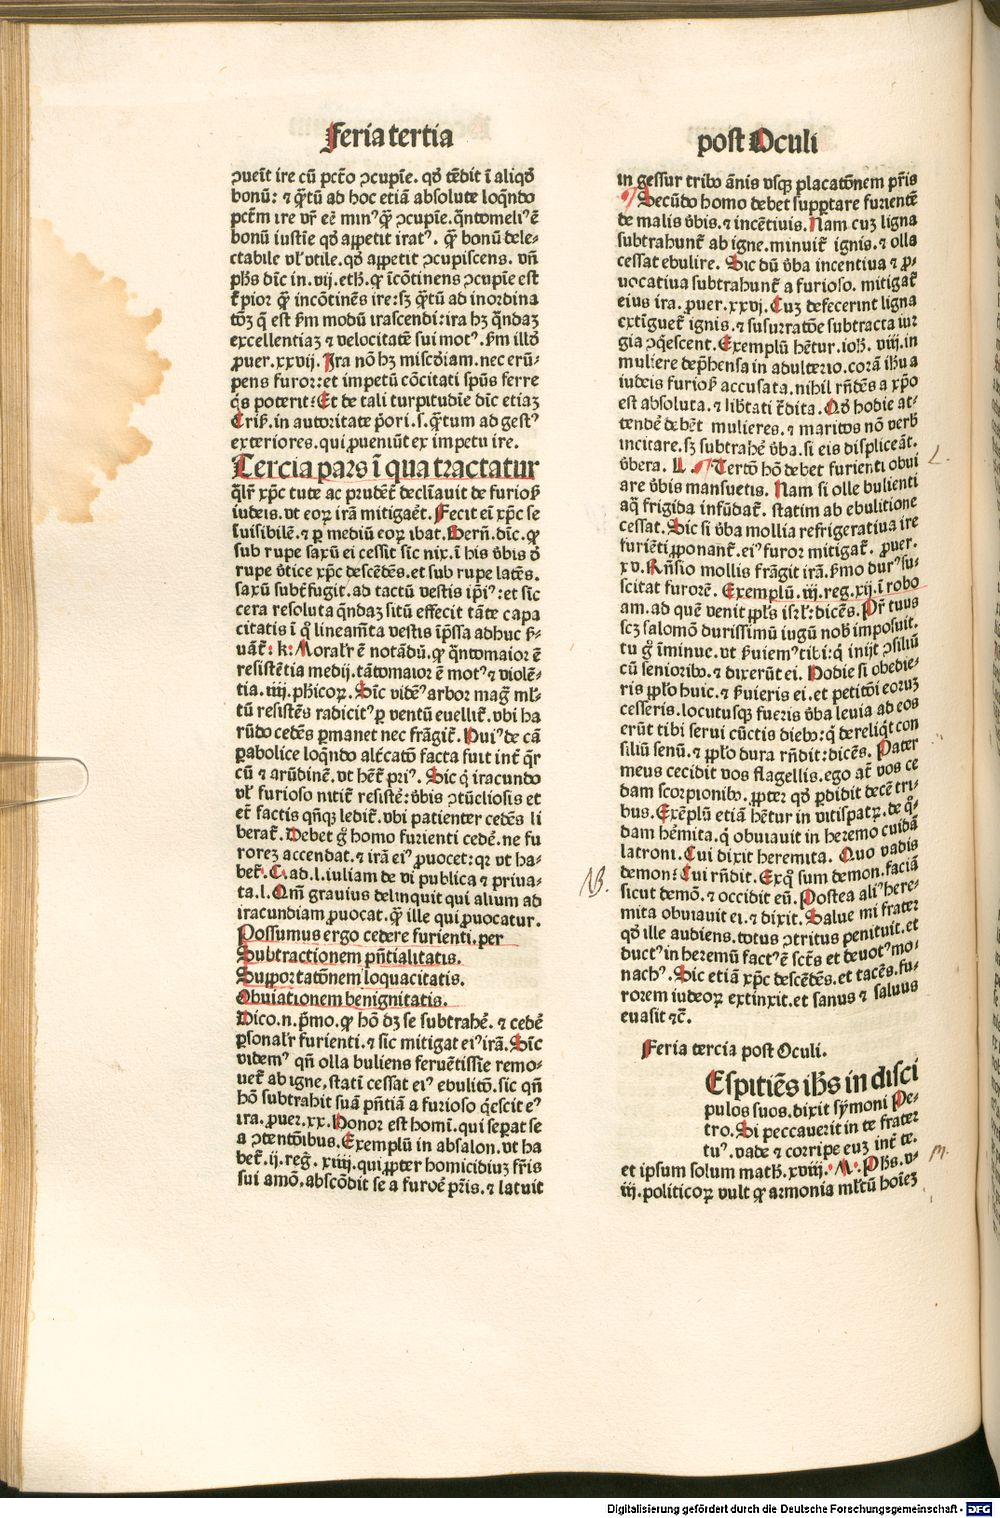 feria tertia
ꝯueīt ire cū pctō ꝯcupīe. qđ tēdit ī aliqđ
bonū: ⁊ q̄tū ad hoc etiā absolute loqn̄do
pctm̄ ire vr̄ eē minꝰ q̄ꝫ ꝯcupīe. q̄ntomeliꝰ ē
bonū iustīe qđ appetit iratꝰ. q̄ꝫ bonū dele-
ctabile vl̓ vtile. qđ appetit ꝯcupiscens. vn̄
ph̄s dic̄ in .vij. eth̄. ꝙ īcōtinens ꝯcupīe est
t̄pior q̄ꝫ incōtinēs ire: sꝫ q̄tū ad inordina
tōꝫ q̄ est ẜm modū irascendi: ira hꝫ q̄ndaꝫ
excellentiaꝫ ⁊ velocitatē sui motꝰ. ẜm illđ
ꝓuer. xxvij. Ira nō hꝫ misc̄diam. nec erū-
pens furor: et impetū cōcitati spūs ferre
q̄s poterit: Et de tali turpitudīe dic̄ etiaꝫ
Criẜ. in autoritate p̄ori .s. q̄tum ad gestꝰ
exteriores. qui ꝓueniūt ex impetu ire.
Tercia pars ī qua tractatur
q̄lr̄ xp̄c tute ac prudēt̓ declīauit de furioẜ
iudeis. vt eoꝝ irā mitigaēt. Fecit eī xp̄c se
īuisibilē. ⁊ ꝑ mediū eoꝝ ibat. Bern̄. dic̄. ꝙ
sub rupe saxū ei cessit sic nix. ī his v̓bis đ
rupe v̓tice xp̄c descēdēs. et sub rupe latēs.
saxū subt̓fugit. ad tactū vestis ip̄iꝰ: et sic
cera resoluta q̄ndaꝫ sitū effecit tāte capa
citatis ī q̄ lineam̄ta vestis īp̄ssa adhuc ẜ-
uāt̓: k: Moralr̄ ē notādū. ꝙ q̄ntomaior ē
resistētia medij. tātomaior ē motꝰ ⁊ violē-
tia. iiij. ph̄icoꝝ. Sic̄ videmꝰ arbor mag̓ ml̓-
tū resistēs radicitꝰ ꝑ ventū euellit̓. vbi ha
rūdo cedēs ꝑmanet nec frāgit̓. Huiꝰ de cā
ꝑabolice loqn̄do alt̓catō facta fuit int̓ q̓r
cū ⁊ arūdinē. vt hēt̓ priꝰ. Sic q̓ iracundo
vl̓ furioso nitit̓ resistē: v̓bis ꝯtūeliosis et
et̓ factis qn̄qꝫ ledit̓. vbi patienter cedēs li
berat̓. Debet g̓ homo furienti cedē. ne fu
roreꝫ accendat. ⁊ irā eiꝰ ꝓuocet: qꝛ vt ha-
bet̓. C. ad .l. iuliam de vi publica ⁊ priua-
ta .l. Qm̄ grauius delinquit qui alium ad
iracundiam ꝓuocat. q̄ꝫ ille qui ꝓuocatur.
Possumus ergo cedere furienti. per
Subtractionem pn̄tialitatis.
Supportatōnem loquacitatis.
Obuiationem benignitatis.
Dico .n. p̄mo. ꝙ hō dꝫ se subtrahē. ⁊ cedē
ꝑsonalr̄ furienti. ⁊ sic mitigat eiꝰ irā. Sic̄
videmꝰ qn̄ olla buliens feruētissīe remo-
uet̓ ab igne, statī cessat eiꝰ ebulitō. sic qn̄
hō subtrahit suā pn̄tiā a furioso q̓escit eꝰ
ira. ꝓuer. xx. Honor est homī. qui seꝑat se
a ꝯtentōibus. Exemplū in absalon. vt ha
bet̓. ij. reg̓. xiiij. qui ꝓpter homicidiuꝫ fr̄is
sui amō. abscōdit se a furoē pr̄is. ⁊ latuit
post Oculi
in gessur tribꝰ ānis vsqꝫ placatōnem pr̄is
Secūdo homo debet supportare furientē
de malis v̓bis. ⁊ incētiuis. Nam cuꝫ ligna
subtrahunt̓ ab igne. minuit̓ ignis. ⁊ olla
cessat ebulire. Sic dū v̓ba incentiua ⁊ ꝓ-
uocatiua subtrahunt̓ a furioso. mitigat̓
eius ira. ꝓuer. xxvj. Cuꝫ defecerint ligna
extīguet̓ ignis. ⁊ susurratōe subtracta iur
gia ꝯq̓escent. Exemplū hētur. ioh̄. viij. in
muliere dep̄hensa in adulterio. corā ihū a
iudeis furioẜ accusata. nihil rn̄dēs a xp̄o
est absoluta. ⁊ lib̓tati t̓dita. Qđ hodie at-
tendē dēbēt mulieres. ⁊ maritos nō verb̓
incitare. sꝫ subtrahē v̓ba. si eis displiceāt.
v̓bera. L. Tertō hō debet furienti obui
are v̓bis mansuetis. Nam si olle bulienti
aq̓ frigida infūdat̓. statim ab ebulitione
cessat. Sic si v̓ba mollia refrigeratiua ire
furiēti ꝓponant̓. eiꝰ furor mitigat̓. ꝓuer.
xv. Rn̄sio mollis frāgit irā. ẜmo durꝰ su-
scitat furorē. Exemplū .iij. reg. xij. ī robo
am. ad quē venit ppl̓s isrl̓: dicēs. Pr̄ tuus
scꝫ salomō durissimū iugū nob̓ imposuit.
tu g̓ īminue. vt ẜuiemꝰ tibi: q̓ inijt ꝯsiliū
cū senioribꝰ. ⁊ dixerūt ei. Hodie si obedie-
ris pplo huic. ⁊ ẜuieris ei. et petitōi eoruꝫ
cesseris. locutusqꝫ fueris v̓ba leuia ad eos
erūt tibi serui cūctis diebꝰ: q̓ dereliq̓t con
siliū senū. ⁊ pplo dura rn̄dit: dicēs. Pater
meus cecidit vos flagellis. ego at̄ vos ce
dam scorpionibꝰ. ꝓpter qđ ꝑdidit decē tri-
bus. Exēplū etiā hētur in vitispatꝝ. de q̓-
dam hēmita. q̓ obuiauit in heremo cuidā
latroni. Cui dixit heremita. Quo vadis
demon: Cui rn̄dit. Exq̓ sum demon. faciā
sicut demō. ⁊ occidit eū. Postea aliꝰ here-
mita obuiauit ei. ⁊ dixit. Salue mi frater
qđ ille audiens. totus ꝯtritus penituit. et
ductꝰ in heremū factꝰ ē sct̄s et deuotꝰ mo-
nachꝰ. Sic etiā xp̄c descēdēs. et tacēs. fu-
rorem iudeoꝝ extinxit. et sanus ⁊ saluus
euasit ⁊c̄.
Feria tercia post Oculi.
Espitiēs ih̄s in disci
pulos suos. dixit symoni Pe-
tro. Si peccauerit in te frater
tuꝰ. vade ⁊ corripe euꝫ int̓ te.
et ipsum solum math̄. xviij. M. Ph̄s. v-
iij. politicoꝝ vult ꝙ armonia ml̓tū hoīeꝫ
NB.
L.
m.
Digitalisierung gefördert durch die Deutsche Forschungsgemeinschaft - DFG